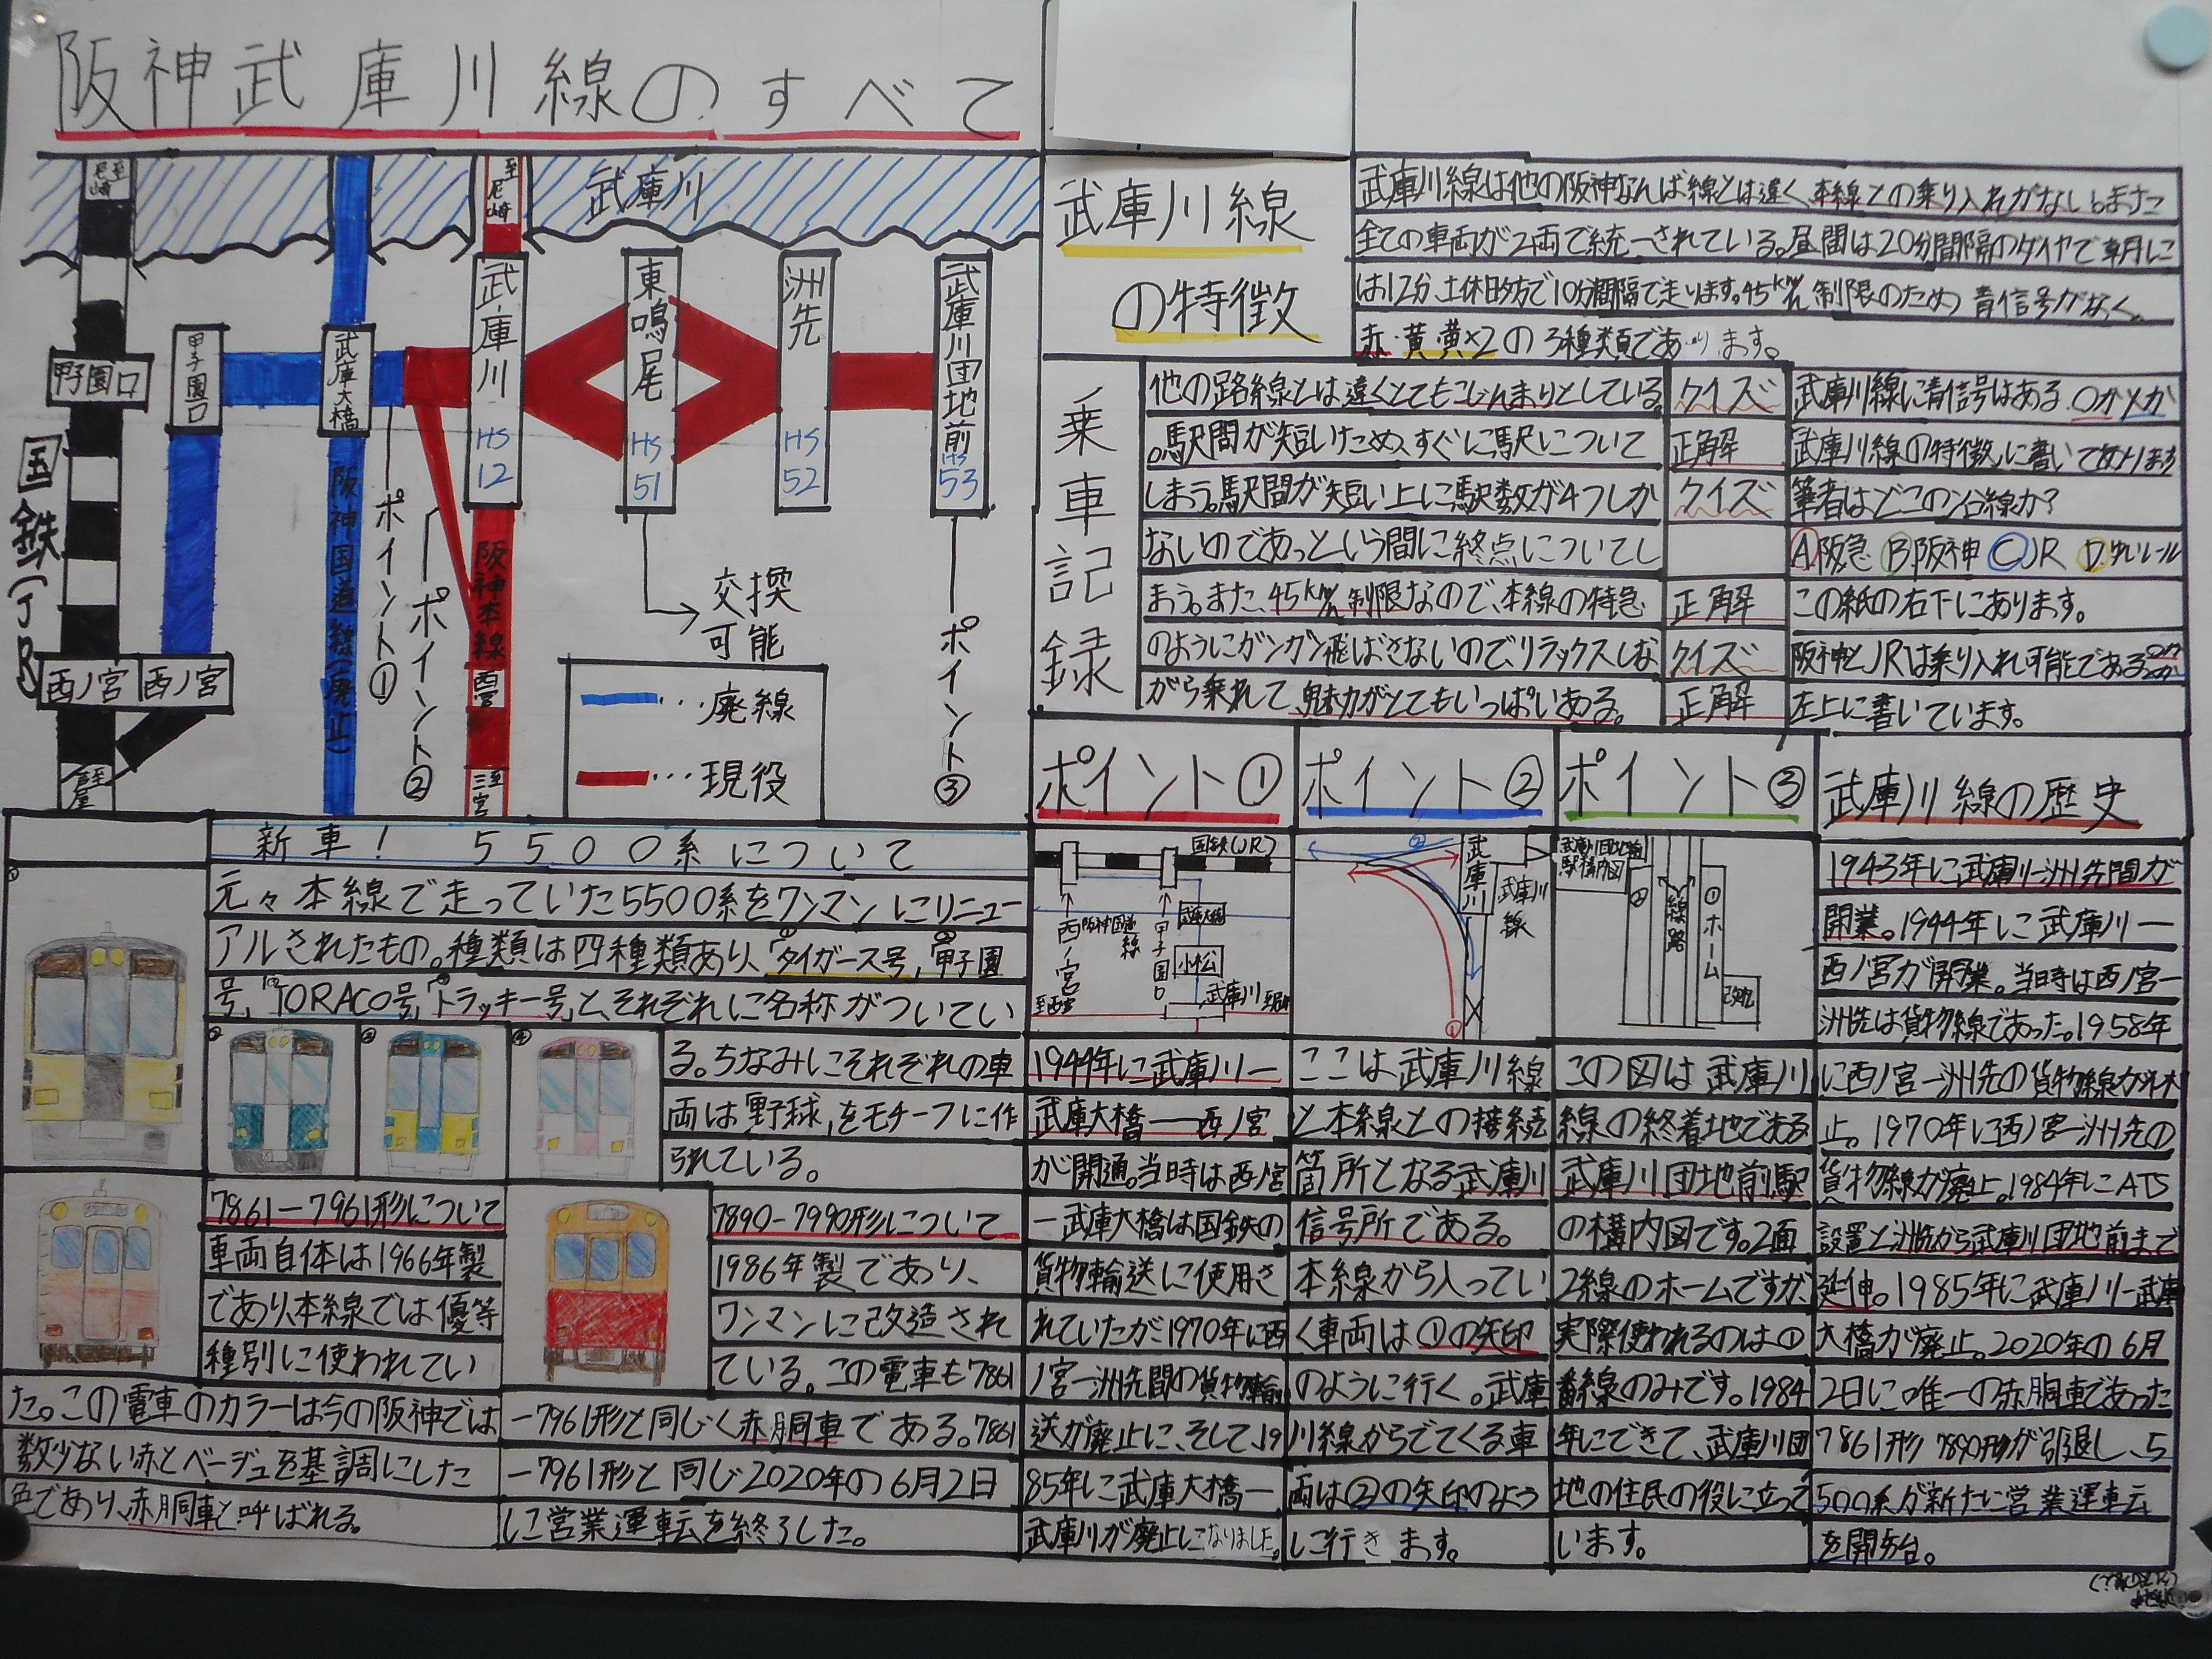 阪神武庫川線のすべて
至尼崎
至尼崎
武庫川
甲子園口
甲子園口
武庫大橋
武庫川
HS
12
東鳴尾
HS
51
洲先
HS
52
武庫川団地前
HS
53
国鉄(JR)
西ノ宮
西ノ宮
至芦屋
阪神国道線(廃止)
ポイント①
ポイント②
阪神本線
西宮
至三宮
交換
可能
ポイント③
…廃線
…現役
武庫川線
の特徴
武庫川線は他の阪神なんば線とは違く、本線との乗り入れがない。また
全ての車両が2両で統一されている。昼間は20分間隔のダイヤで朝に
は12分、土休日夕方で10分間隔で走ります。45km/h制限のため青信号がなく、
赤・黄・黄×2の3種類であります。
乗車記録
他の路線とは違くとてもこじんまりとしている
。駅間が短いため、すぐに駅について
しまう。駅間が短い上に駅数が4つしか
ないのであっという間に終点についてし
まう。また、45km/h制限なので、本線の特急
のようにガンガン飛ばさないので、リラックスしな
がら乗れて、魅力がとてもいっぱいある。
クイズ 武庫川線に青信号はある。○か×か
正解 武庫川線の特徴に書いてあります
クイズ 筆者はどこの沿線か?
Ⓐ阪急 Ⓑ阪神 ⒸJR Ⓓゆいレール
正解 この紙の右下にあります。
クイズ 阪神とJRは乗り入れ可能である
正解 左上に書いています。
新車! 5500系について
元々本線で走っていた5500系をワンマンにリニュー
アルされたもの。種類は四種類あり、「タイガース号」,「甲子園
号」,「TORACO号」,「トラッキー号」と、それぞれに名称がついてい
る。ちなみにそれぞれの車
両は「野球」をモチーフに作
られている。
①
②
③
④
7861-7961形について
車両自体は1966年製
であり、本線では優等
種別に使われてい
た。この電車のカラーは今の阪神では
数少ない赤とベージュを基調にした
色であり、赤胴車と呼ばれる。
7890-7990形について
1986年製であり、
ワンマンに改造され
ている。この電車も7861
-7961形と同じく赤胴車である。7861
-7961形と同じ2020年の6月2日
に営業運転を終了した。
ポイント①
国鉄(JR)
西ノ宮
阪神国道線
甲子園口
武庫大橋
小松
武庫川
1944年に武庫川ー
武庫大橋ー西ノ宮
が開通。当時は西ノ宮
ー武庫大橋は国鉄の
貨物輸送に使用さ
れていたが、1970年に西
ノ宮ー洲先間の貨物輸
送が廃止に、そして、19
85年に武庫大橋ー
武庫川が廃止になりました。
ポイント②
②
武庫川
武庫川線
①
ここは武庫川線
と本線との接続
箇所となる武庫川
信号所である。
本線から入ってい
く車両は①の矢印
のように行く。武庫
川線からでてくる車
両は②の矢印のよう
に行きます。
ポイント③
武庫川団地前
駅構内図
②
線路
①ホーム
改札
この図は武庫川
線の終着地である
武庫川団地前駅
の構内図です。2面
2線のホームですが、
実際使われるのは①
番線のみです。1984
年にできて、武庫川団
地の住民の役に立って
います。
武庫川線の歴史
1943年に武庫川ー洲先間が
開業。1944年に武庫川ー
西ノ宮が開業。当時は西ノ宮ー
洲先は貨物線であった。1958年
に西ノ宮ー洲先の貨物線が休
止。1970年に西ノ宮ー洲先の
貨物線が廃止。1984年にATS
設置と洲先から武庫川団地前まで
延伸。1985年に武庫川ー武庫
大橋が廃止。2020年の6月
2日に唯一の赤胴車であった
7861形 7890形が引退し、5
500系が新たに営業運転
を開始。